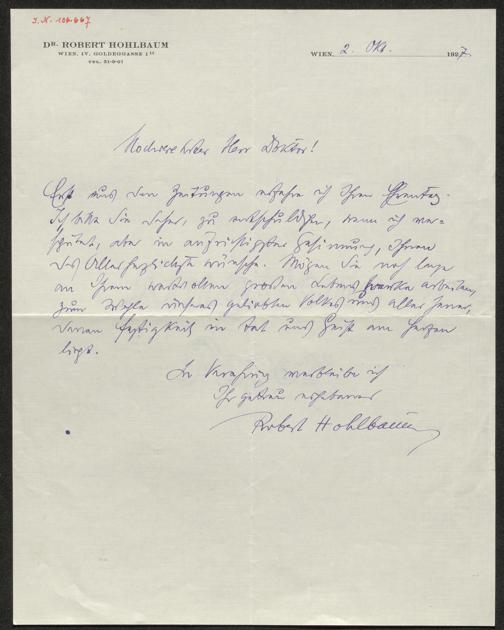 J. N. 106.667
DR. ROBERT HOHLBAUM
WIEN, IV. GOLDEGGASSE 1
TEL. 51-0-01
WIEN, 2. Okt. 1927
Hochverehrter Herr Doktor!
Erst aus den Zeitungen erfahre ich Ihren
Ich bitte Sie daher, zu entschuldigen, wenn ich ver=
spätet, aber in aufrichtigster Gesinnung, Ihnen
das Allerherzlichste wünsche. Mögen Sie noch lange
an Ihrem wertvollen großen Lebenswerke arbeiten,
zum Wohle unseres geliebten Volkes und aller jener,
denen Festigkeit in Tat und Geist am Herzen
liegt.
In Verehrung verbleibe ich
Ihr getreu ergebener
Robert Hohlbaum